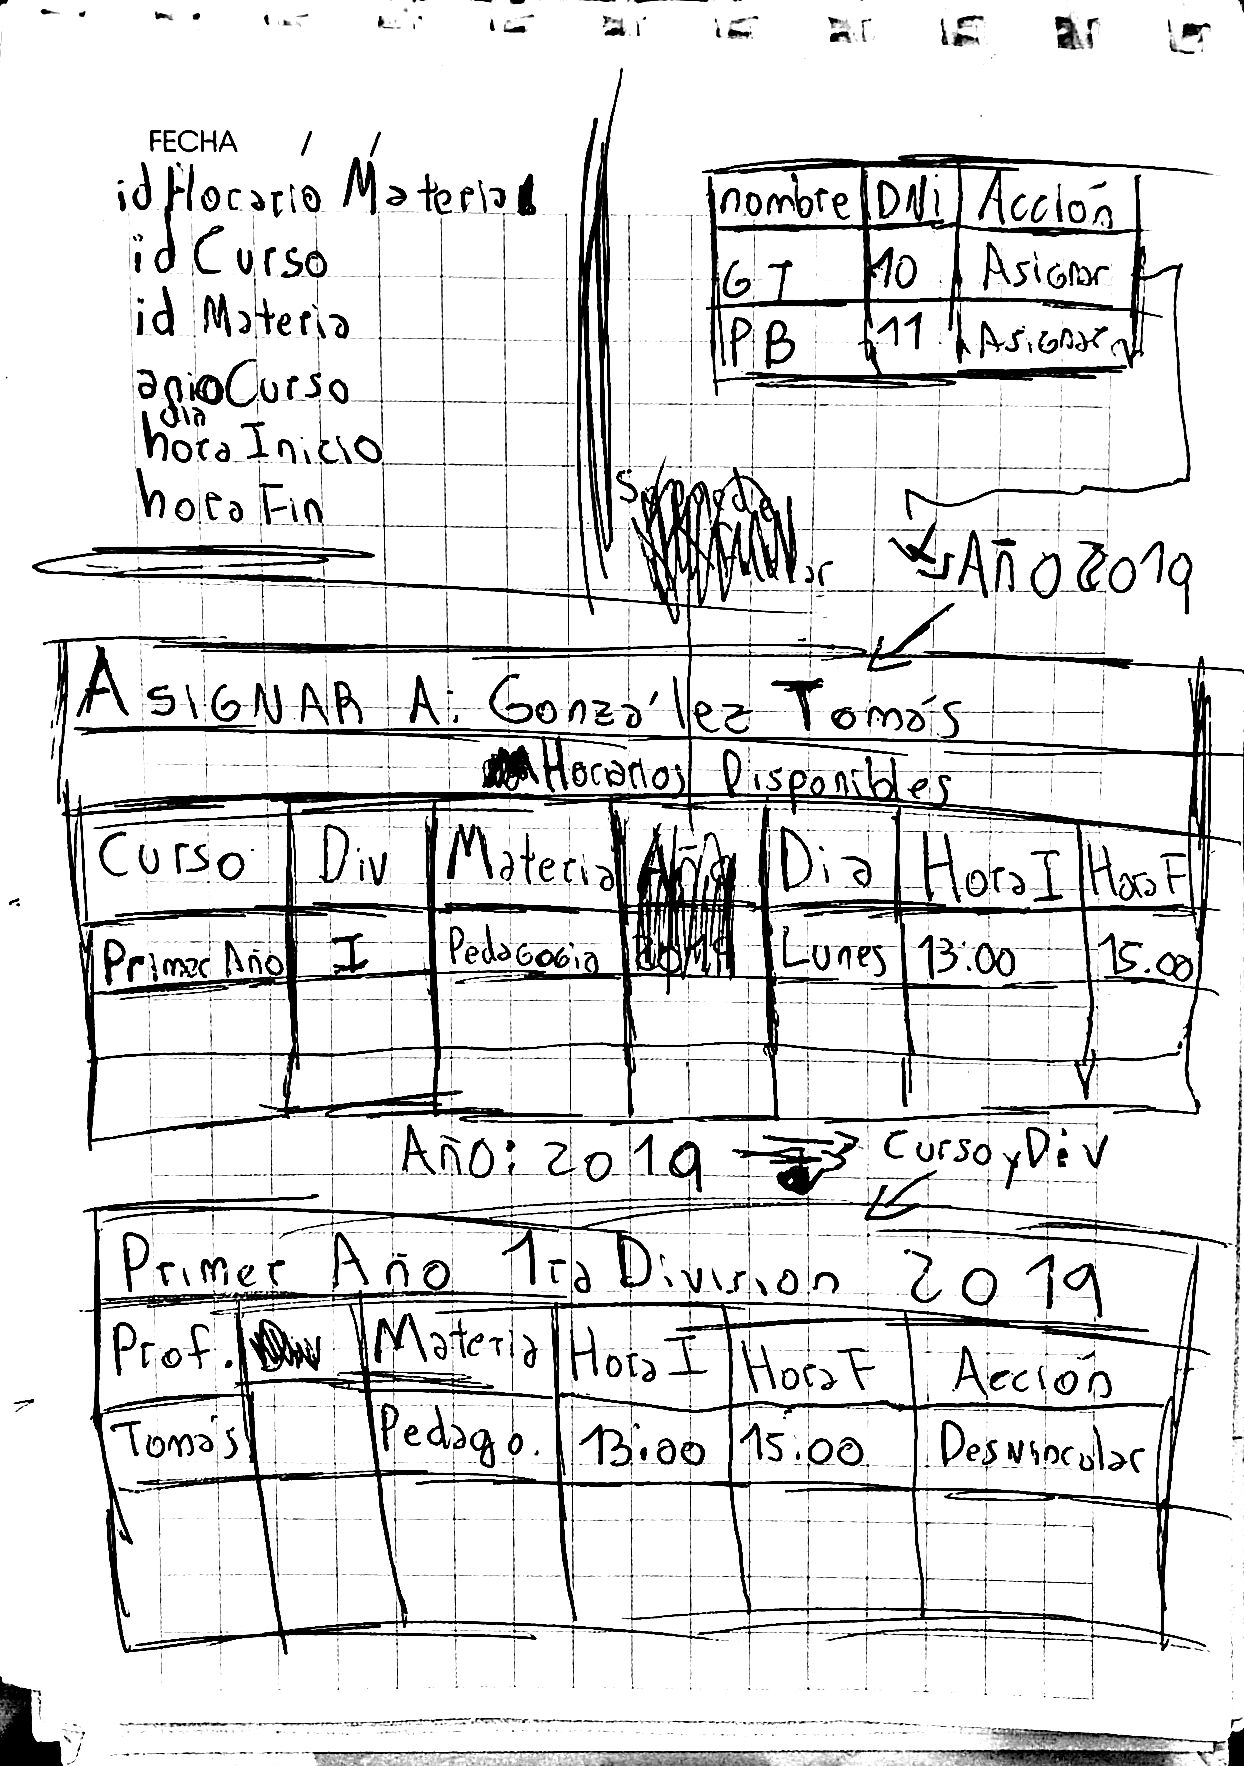 FECHA / /
idHorario Materia
idCurso
id Materia
anioCurso
dia
horaInicio
horaFin
nombre DNi Acción
GT 10 Asignar
PB 11 Asignar
Año 2019
ASIGNAR A: González Tomás
Horarios Disponibles
Curso Div Materia Año Dia Hora I Hora F
Primer Año I Pedagogia 2019 Lunes 13:00 15.00
Año: 2019 Curso y Div
Primer Año 1ra Division 2019
Prof. Div Materia Hora I Hora F Acción
Tomás Pedago. 13:00 15:00 Desvincular